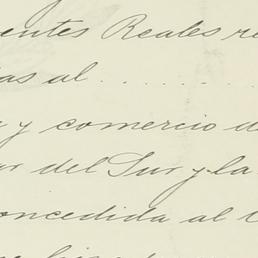 entes Reales r
as al . . . . . . .
y comercio d
ar del Sur y la
concedida al